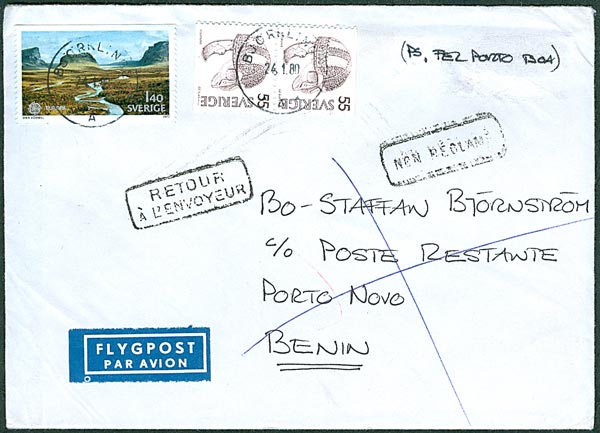 BJÖRKLIN
A
1.40
EUROPA
SVERIGE
BJÖRKLIN
24.1.80
SVERIGE 55
SVERIGE 55
(PS. FEL PORTO BOA)
RETOUR
À L'ENVOYEUR
NON RÉCLAMÉ
BO-STAFFAN BJÖRNSTRÖM
c/o POSTE RESTANTE
PORTO NOVO
BENIN
FLYGPOST
PAR AVION